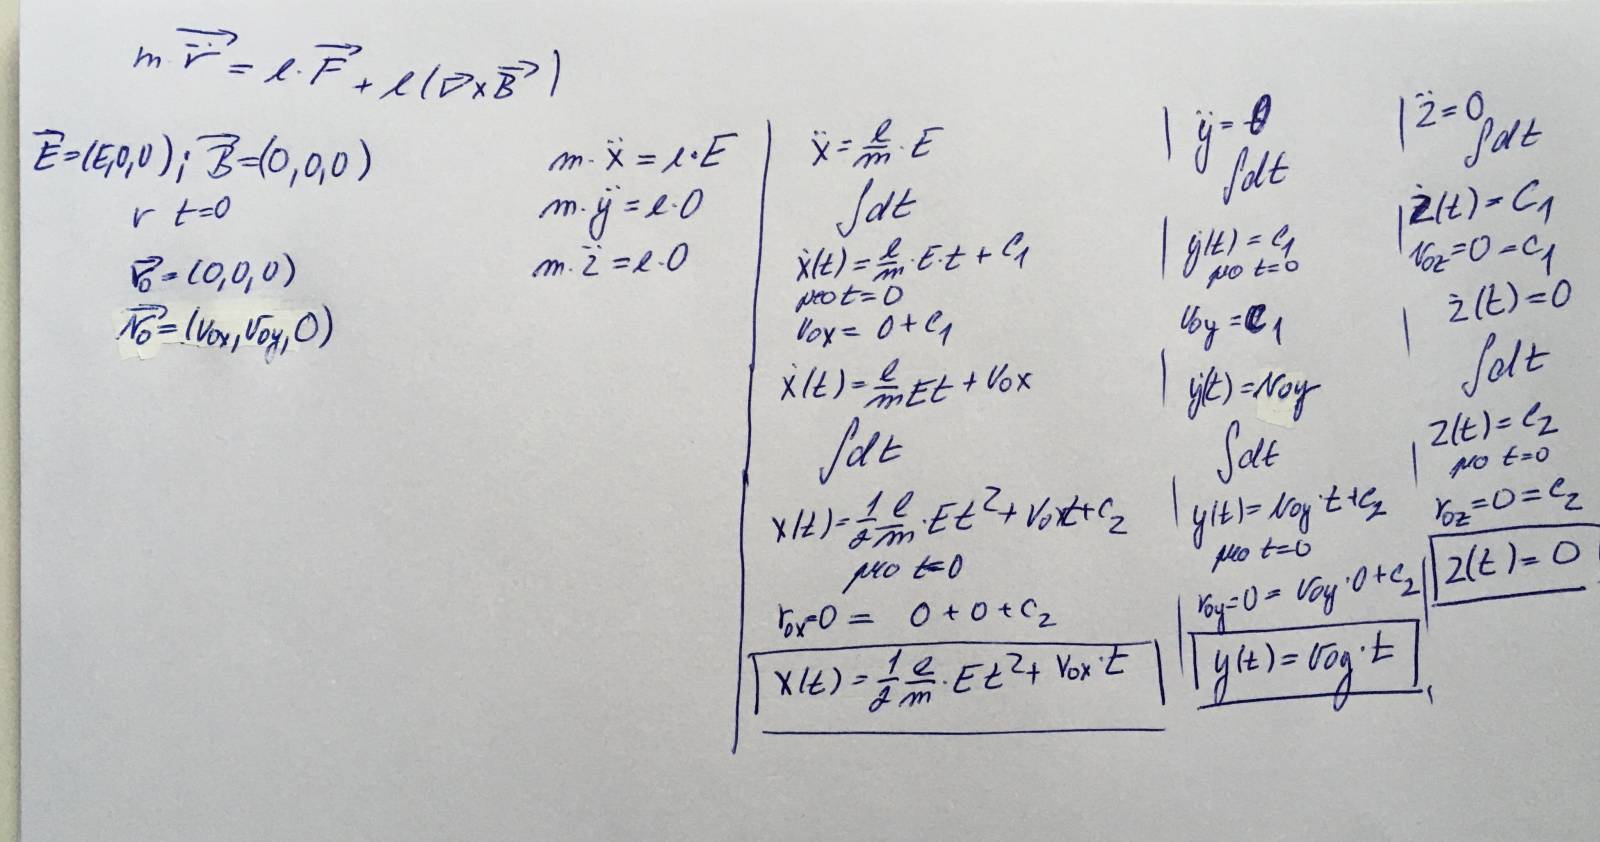 m·r̈⃗ = e·F⃗ + e(v⃗×B⃗)
E⃗=(E,0,0); B⃗=(0,0,0)
v t=0
r⃗₀=(0,0,0)
v⃗₀=(v₀ₓ,v₀y,0)
m·ẍ = e·E
m·ÿ = e·0
m·z̈ = e·0
ẍ = e/m · E
∫dt
ẋ(t) = e/m · E·t + C₁
pro t=0
v₀ₓ = 0 + C₁
ẋ(t) = e/m Et + v₀ₓ
∫dt
x(t) = 1/2 e/m · Et² + v₀ₓt + C₂
pro t=0
r₀ₓ=0 = 0 + 0 + C₂
x(t) = 1/2 e/m · Et² + v₀ₓ·t
ÿ = 0
∫dt
ẏ(t) = C₁
pro t=0
v₀y = C₁
ẏ(t) = v₀y
∫dt
y(t) = v₀y·t + C₂
pro t=0
r₀y=0 = v₀y·0 + C₂
y(t) = v₀y·t
z̈ = 0
∫dt
ż(t) = C₁
v₀z = 0 = C₁
ż(t) = 0
∫dt
z(t) = C₂
pro t=0
r₀z = 0 = C₂
z(t) = 0